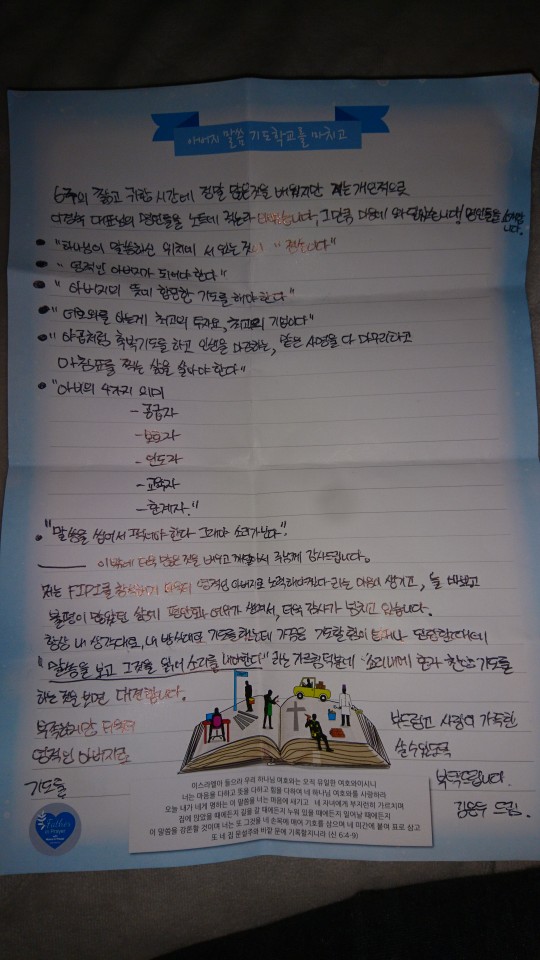 아버지 말씀 기도학교를 마치고
6주의 짧고 귀한 시간에 정말 많은것을 배웠지만 저는 개인적으로
대표님의 명언들을 노트에 적느라 그만큼 마음에 와 명언들을 소개합
니다.
"하나님이 말씀하신 위치에 서 있는 것이 "
"영적인 아버지가 되어야 한다"
"아버지의 뜻에 합당한 기도를 해야 한다"
"여호와를 아는게 최고의 투자요, 최고의 기업이다"
"야곱처럼 축복기도를 하고 인생을 마감하는, 맡은 사명을 다 마무리하고
마침표를 찍는 삶을 살아야 한다"
"아버지의 4가지 의미
- 공급자
- 보호자
- 인도자
- 교육자
- 훈계자."
"말씀을 씹어서 먹어야 한다 그래야 소리가난다"
이밖에 더욱 많은 것을 배우고 깨달아서 주님께 감사드립니다.
저는 FIP1를 영적인 아버지로 노력해야겠다 라는 마음이 생기고, 늘 바쁘고
불평이 많았던 삶에 평안함과 여유가 생겨서, 더욱 감사가 넘치고 있습니다.
항상 내 생각대로, 내 방식대로 기도를 했는데 가정을 기도할 힘이
"말씀을 보고 그것을 읽어 소리를 내야한다" 라는 가르침 덕분에 소리내어 기도를
하는 것을 보면 대견합니다.
부족하지만 더욱더 부드럽고 사랑이 가득한
영적인 아버지로
기도를 부탁드립니다.
드림.
Father
in Prayer
이스라엘아 들으라 우리 하나님 여호와는 오직 유일한 여호와이시니
너는 마음을 다하고 뜻을 다하고 힘을 다하여 네 하나님 여호와를 사랑하라
오늘 내가 네게 명하는 이 말씀을 너는 마음에 새기고 네 자녀에게 부지런히 가르치며
집에 앉았을 때에든지 길을 갈 때에든지 누워 있을 때에든지 일어날 때에든지
이 말씀을 강론할 것이며 너는 또 그것을 네 손목에 매어 기호를 삼으며 네 미간에 붙여 표로 삼고
또 네 집 문설주와 바깥 문에 기록할지니라 (신 6:4-9)